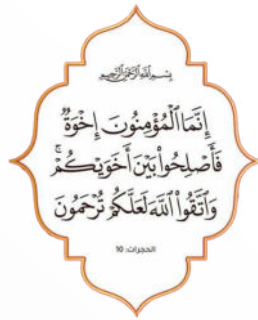 بِسْمِ اللَّهِ الرَّحْمَٰنِ الرَّحِيمِ
إِنَّمَا ٱلْمُؤْمِنُونَ إِخْوَةٌ
فَأَصْلِحُوا۟ بَيْنَ أَخَوَيْكُمْ ۚ
وَٱتَّقُوا۟ ٱللَّهَ لَعَلَّكُمْ تُرْحَمُونَ
الحجرات: 10